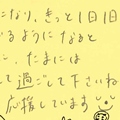 になり、きっと1日1日
るようになると
、たまには
して過ごして下さいね
応援しています